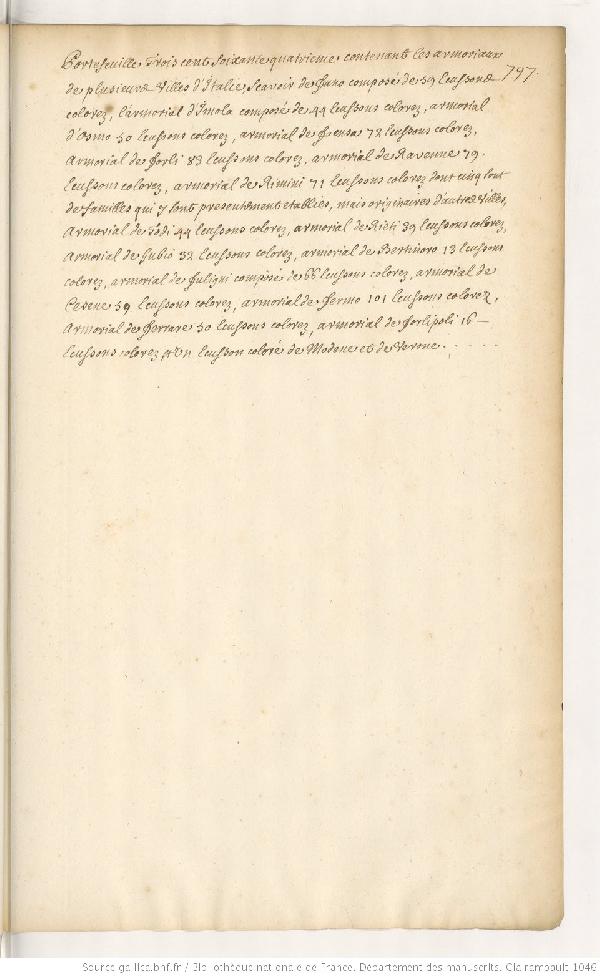 Portefeuille Trois cent soixante quatrieme contenant les armoriaux
797.
de plusieurs Villes d'Italie, scavoir de Fano composé de 59 Ecussons
colorez, l'armorial d'Imola composé de 44 Ecussons colorez, armorial
d'Osmo 50 Ecussons colorez, armorial de Faensa 72 Ecussons colorez,
armorial de Forli 83 Ecussons colorez, armorial de Ravenne 79.
Ecussons colorez, armorial de Rimini 71 Ecussons colorez dont cinq sont
de familles qui y sont presentement etablies, mais originaires d'autres Villes,
armorial de 44 Ecussons colorez, armorial de Rieti 39 Ecussons colorez,
armorial de Gubio 32 Ecussons colorez, armorial de Bertinoro 13 Ecussons
colorez, armorial de Fuligni composé de 66 Ecussons colorez, armorial de
Cesene 59 Ecussons colorez, armorial de Fermo 101 Ecussons colorez,
armorial de Ferrare 50 Ecussons colorez, armorial de Forlipoli 16 —
Ecussons colorez, et Un Ecusson coloré de Modene et de Verone. . . . . .
Source gallica.bnf.fr / Bibliothèque nationale de France. Département des manuscrits. Clairambault 1046